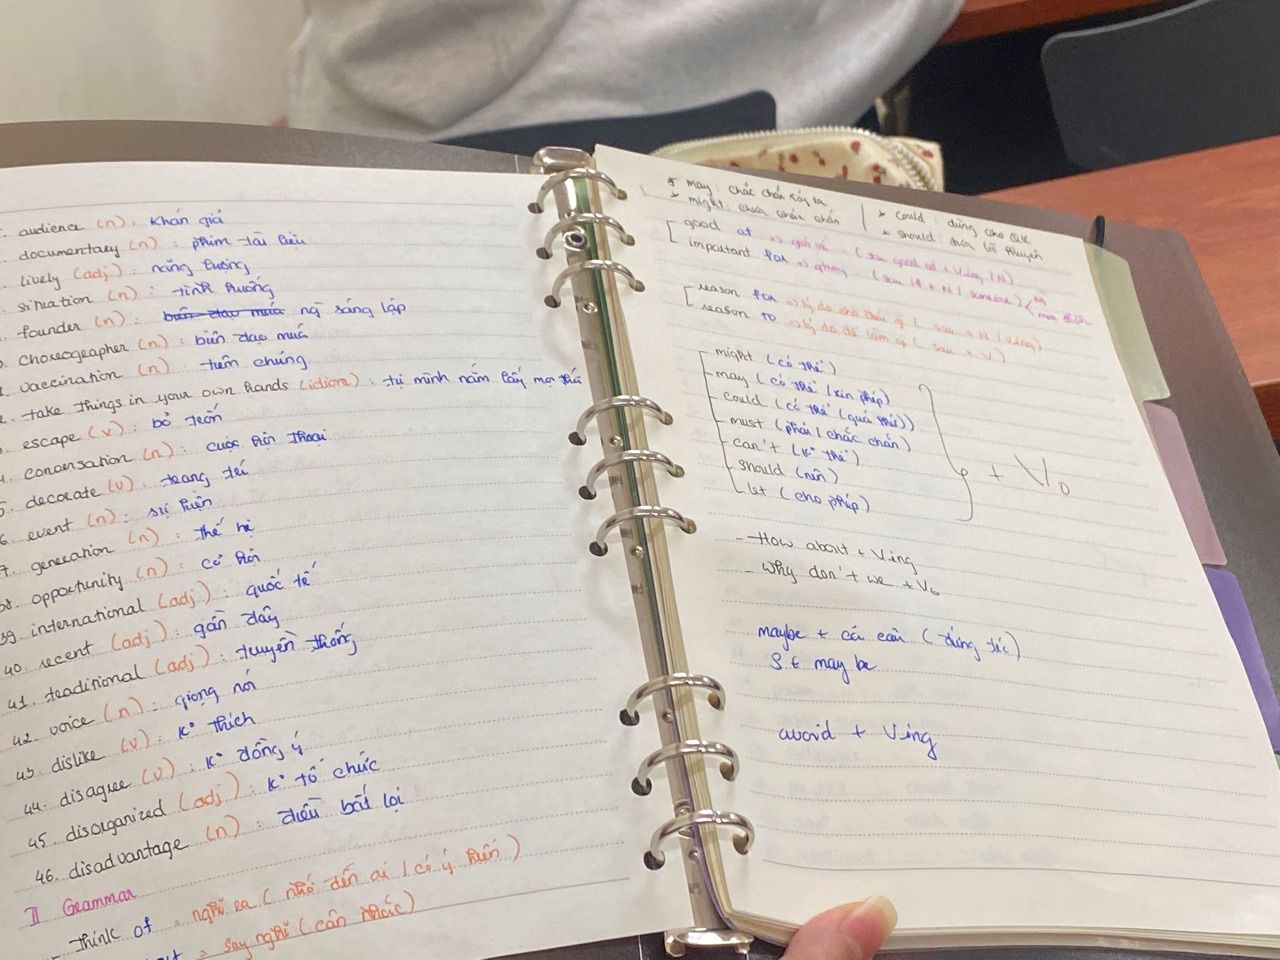 audience (n): khán giả
documentary (n): phim tài liệu
lively (adj): năng lượng
situation (n): tình huống
founder (n): biên đạo múa ng sáng lập
choreographer (n): biên đạo múa
vaccination (n): tiêm chủng
take things in your own hands (idiom): tự mình nắm lấy mọi thứ
escape (v): bỏ trốn
conversation (n): cuộc hội thoại
decorate (v): trang trí
event (n): sự kiện
generation (n): thế hệ
38. opportunity (n): cơ hội
39. international (adj): quốc tế
40. recent (adj): gần đây
41. traditional (adj): truyền thống
42. voice (n): giọng nói
43. dislike (v): k° thích
44. disagree (v): k° đồng ý
45. disorganized (adj): k° tổ chức
46. disadvantage (n): điều bất lợi
II Grammar
Think of = nghĩ ra (nhớ đến ai / có ý kiến)
= suy nghĩ (cân nhắc)
* may: chắc chắn xảy ra
* might: chưa chắc chắn
* could: dùng cho QK
* should: đưa lời khuyên
good at => giỏi về (sau good at + Ving / N)
important for => (sau là + N / someone)
mục đích
reason for => lý do cho cái gì (sau + N / Ving)
reason to => lý do để làm gì (sau + V)
might (có thể)
may (có thể / xin phép)
could (có thể (quá khứ))
must (phải / chắc chắn)
can't (k° thể)
should (nên)
let (cho phép)
+ V₀
- How about + Ving
- Why don't we + V₀
maybe + cả câu (đứng trc)
S + may be
avoid + Ving